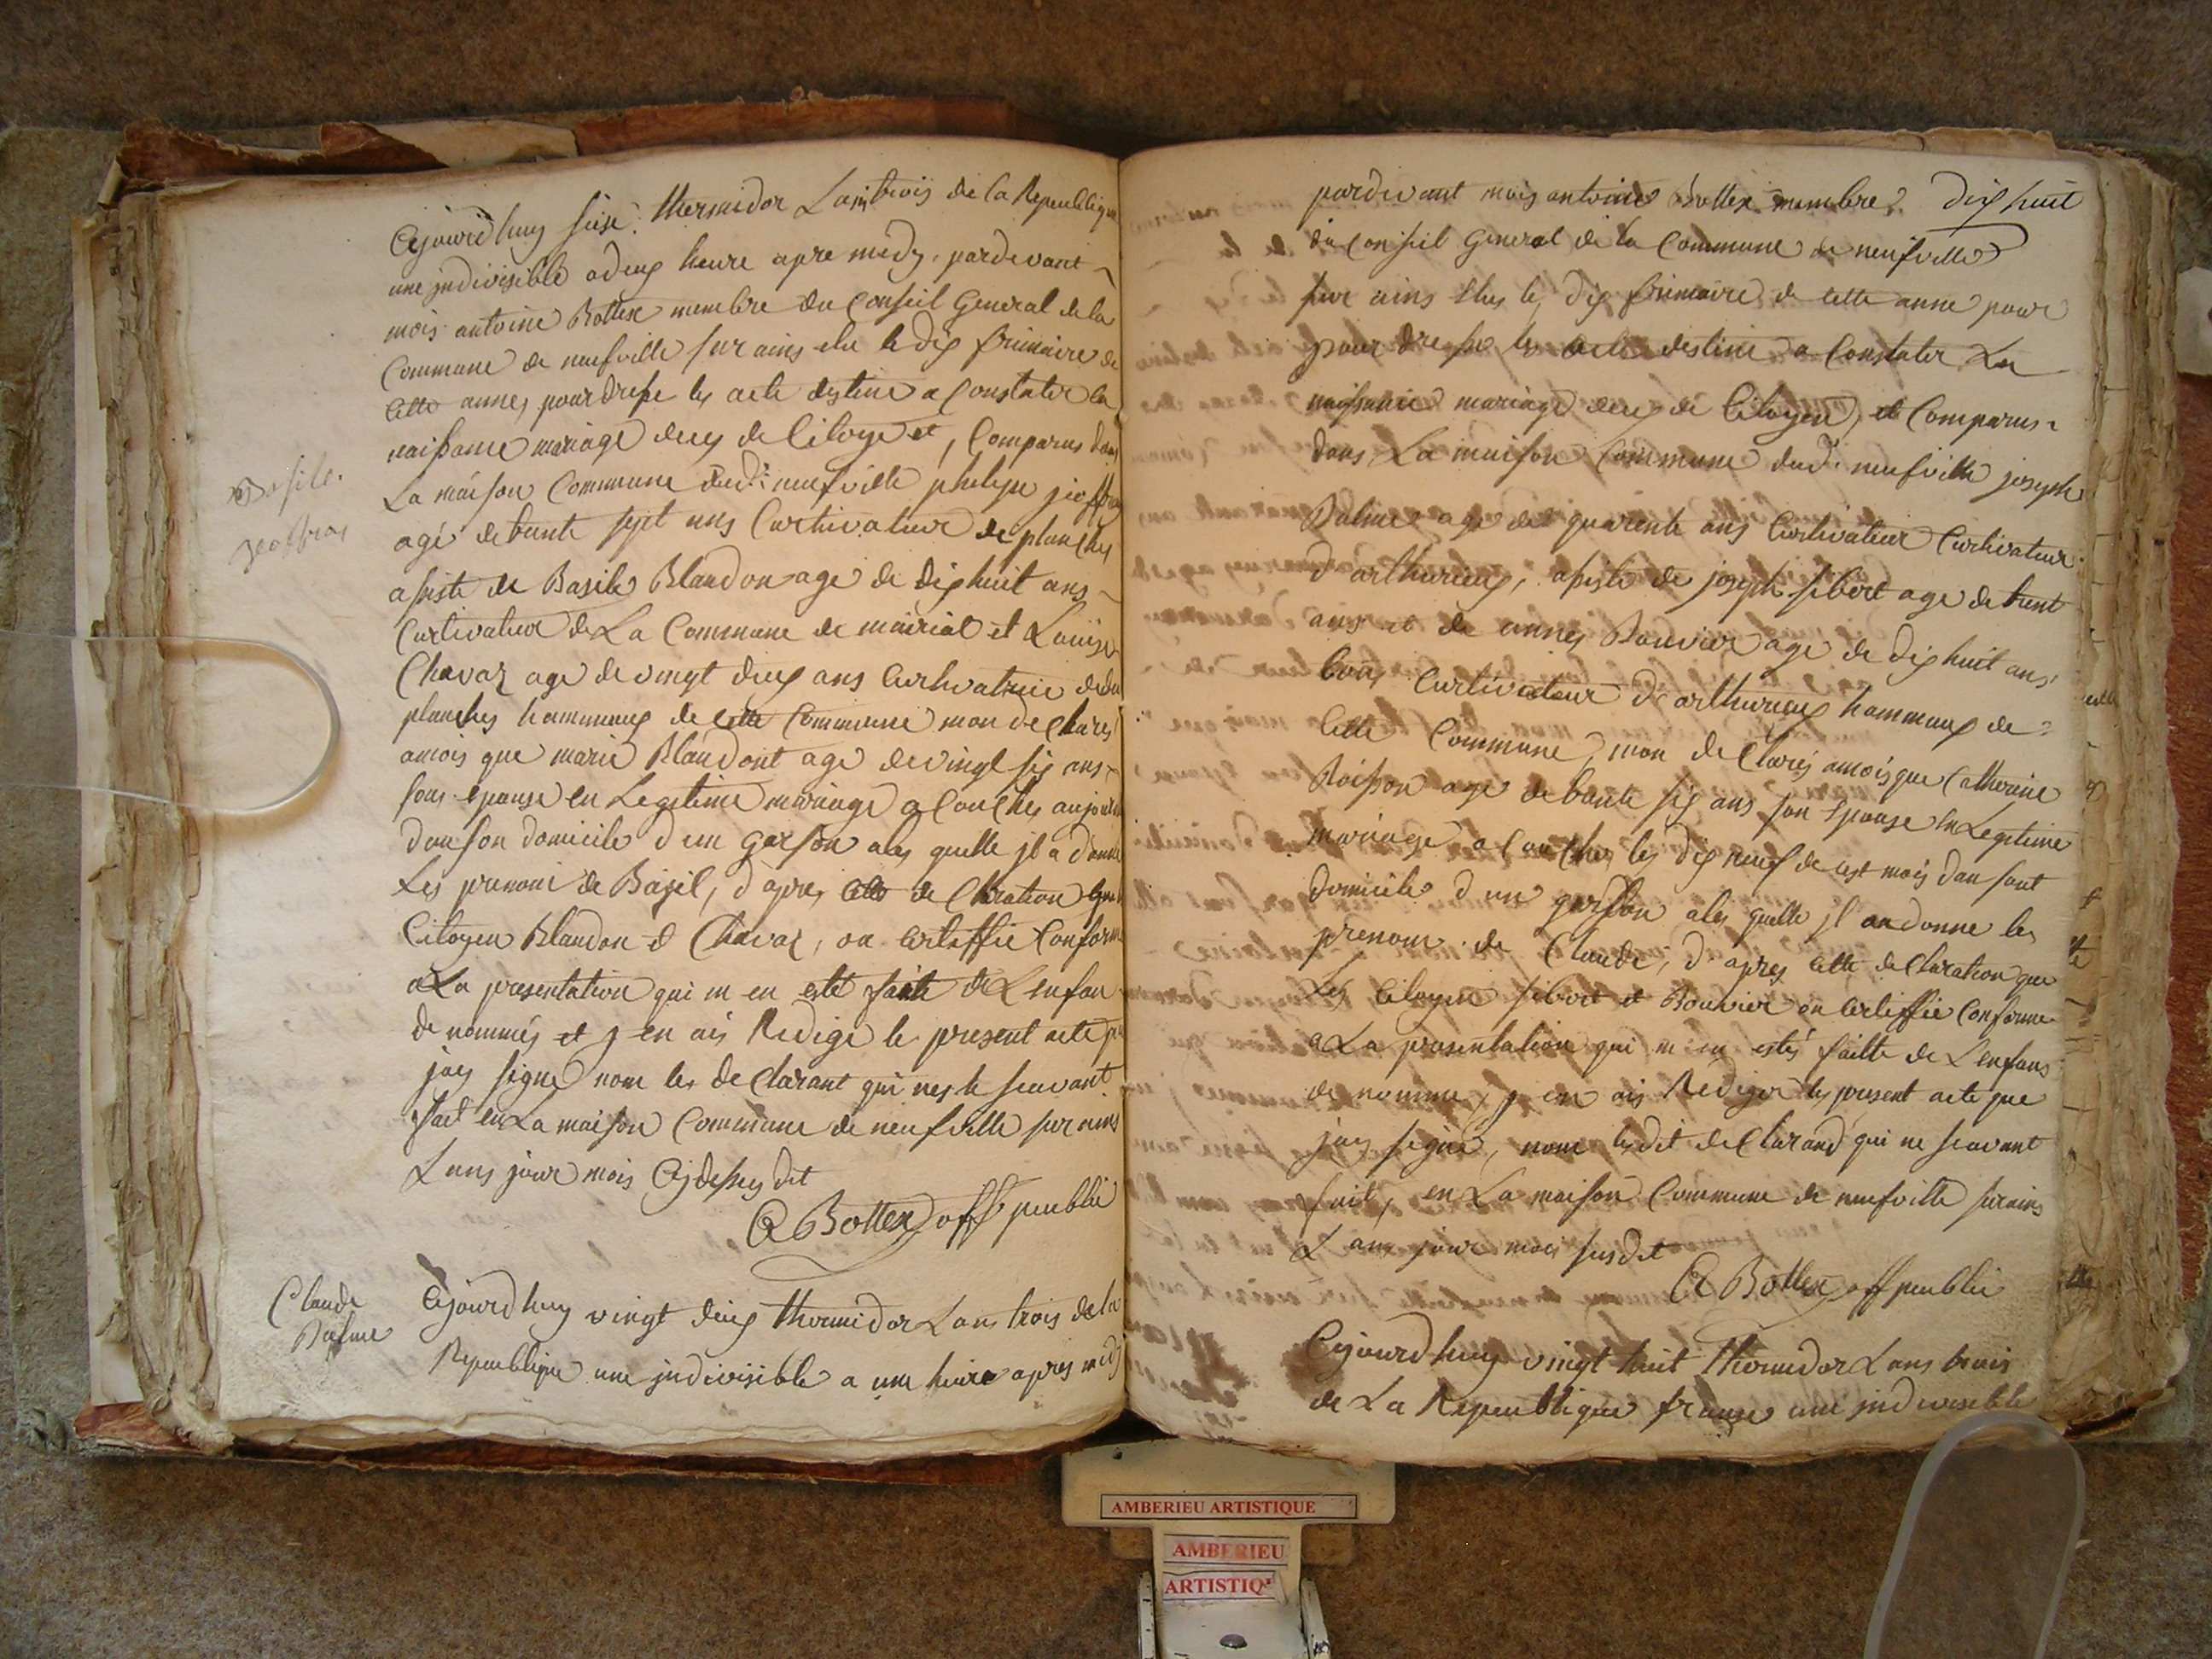 Cejourd huy seise Thermidor Lans trois de la Republique
une jndivisible a deux heure apre midy, pardevant
mois antoine Bottex membre du Conseil General de la
Commune de neufville sur ains elu le dix frimaire de
cette annes pour dresse les acte destine a Constater la
naissance mariage deces de Citoye et, Comparus dans
La maison Commune dud: neufville philipe jeoffray
agé de trante sept ans Curtivateur de planches
assiste de Basile Blandon age de dix huit ans
Curtivateur de La Commune de mairiat et Louise
Chavaz age de vingt deux ans Curtivatrice dedit
planches hammaux de cette Commune mon de Clares
amois que marie Blandont age de vingt six ans
sons epouse en Legitime mariage a Couches aujourd
dans son domicile d un garson a les quelle jl a donne
Les prenom de Basil, d apres cette de Claration que les
Citoyen Blandon et Chavaz, on Certiffie Conforme
a La presentation qui m en esté faite de L enfan
de nommés et j en ais Redige le present acte que
jay signe nom les de Clarant qui nes le seavant
fait en La maison Commune de neufville sur ains
L ans jour mois Cydessus dit
A Bottex off peublic
Basile
jeoffray
Claude
Palme
Cejourd huy vingt deux Thermidor L ans trois de la
Republique une jndivisible a une heure apres midj
dix huit
pardevant mois antoine Bottex membre
du Conseil General de la Commune de neufville
sur ains elus le dix frimaire de cette anne pour
pour dresse les acte destine a Constater La
naissance mariage deces de Citoyen, et Comparus
dans La maison Commune dud: neufville joseph
Palme age de quarente ans Curtivateur Curtivateur
d arthurieux, assiste de joseph sibert age de trent
ans et de annes Bouvier age de dix huit ans
tous Curtivateur d arthurieux hammaux de
Cette Commune, mon de Clarés amois que Catherine
Roisson age de trante six ans son Epouse en Legitime
mariage a Couches les dix neuf de cest mois dan sont
domicile d un garson a les quelle jl on donne les
prenom de Claude, d apres cette de Claration que
Les Citoyen sibert et Bouvier on Certiffie Conforme
a La presentation qui m en estés faitte de L enfans
de nomme, j en ais Rediger les present acte que
jay signé, nom lesdit de Clarand qui ne seavant
fait, en La maison Commune de neufville sur ains
L ans jour mois susdit
A Bottex off peublic
Cejourd huy vingt huit Thermidor L ans trois
de La Republique franse une jndivisible
AMBERIEU ARTISTIQUE
AMBERIEU
ARTISTIQ